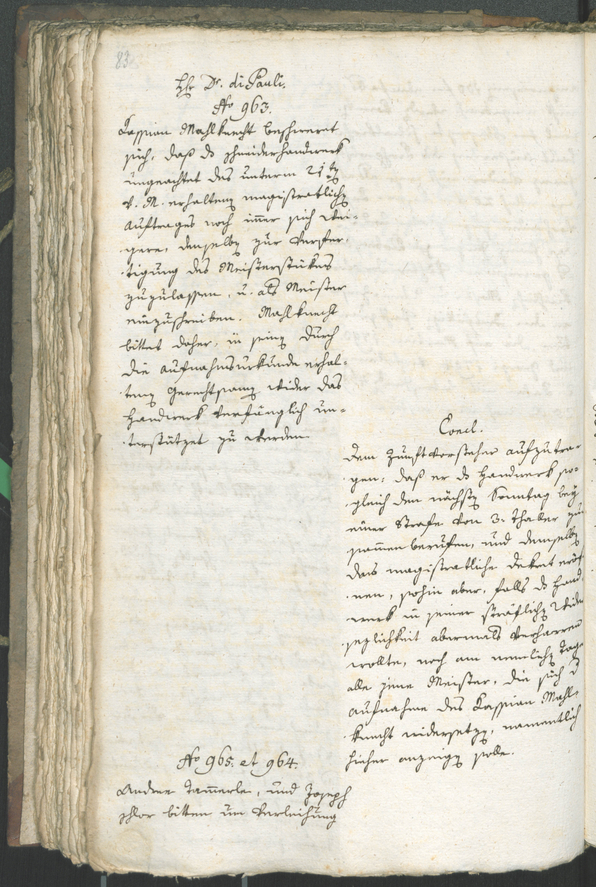 83
Hr Dr. di Pauli.
No 963.
Kassian Mahlknecht beschwerrt
sich, daß ds schneiderhandwerk
ungeachtet des unterm 21ten
v. M. erhaltenen magistratlichen
Auftrages noch immer sich wei-
gere, denselben zur Verfer-
tigung des Meisterstükes
zuzulassen, u. als Meister
einzuschreiben. Mahlknecht
bittet daher, in seinen durch
die Aufnahmsurkunde erhal-
tenen Gerechtsamen wider das
Handwerk verfänglich un-
terstützet zu werden.
Concl.
Dem Zunftvorsteher aufzutra-
gen, daß er ds Handwerk so-
gleich den nächsten Sonntag bey
einer Strafe von 3. Thaler zu-
sammen berufen, und demselben
das magistratliche Dekret eröf-
nen, sohin aber, falls ds Hand-
werk in seiner sträflichen Wider-
sezlichkeit abermals verharren
wollte, noch am nemlichen Tag
alle jene Meister, die sich der
Aufnahme des Kassian Mahl-
knecht widersetzen, namentlich
hieher anzeigen solle.
No 965. et 964.
Andree Tammerle, und Joseph
Flor bitten um Verleihung